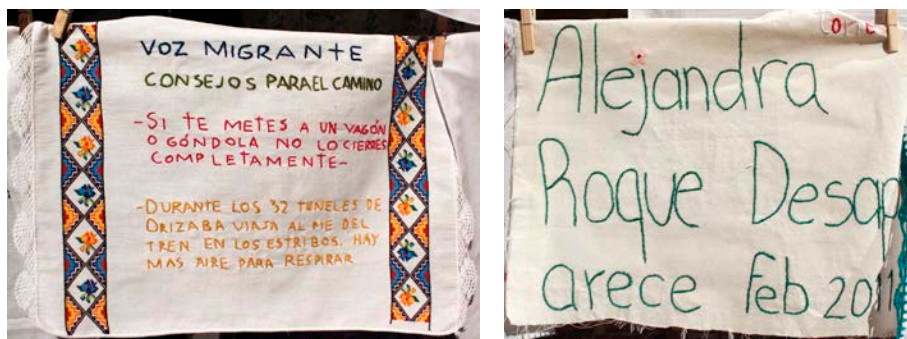 VOZ MIGRANTE
CONSEJOS PARA EL CAMINO
-SI TE METES A UN VAGÓN
O GÓNDOLA NO LO CIERRES
COMPLETAMENTE-
-DURANTE LOS 32 TUNELES DE
ORIZABA VIAJA AL PIE DEL
TREN EN LOS ESTRIBOS. HAY
MAS AIRE PARA RESPIRAR
Alejandra
Roque Desap
arece Feb 2011